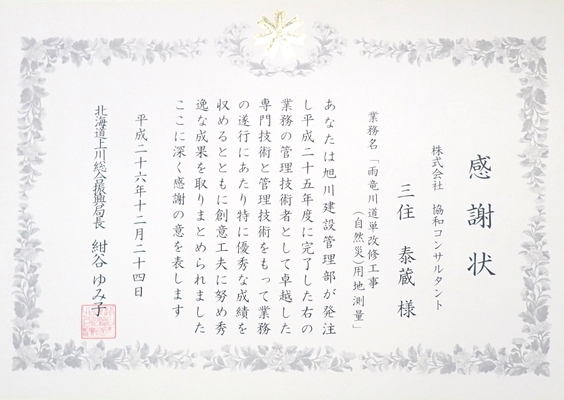 感謝状
株式会社 協和コンサルタント
三住 泰蔵 様
業務名「雨竜川道単改修工事
（自然災）用地測量」
あなたは旭川建設管理部が発注
し平成二十五年度に完了した右の
業務の管理技術者として卓越した
専門技術と管理技術をもって業務
の遂行にあたり特に優秀な成績を
収めるとともに創意工夫に努め秀
逸な成果を取りまとめられました
ここに深く感謝の意を表します
平成二十六年十二月二十四日
北海道上川総合振興局長 紺谷 ゆみ子